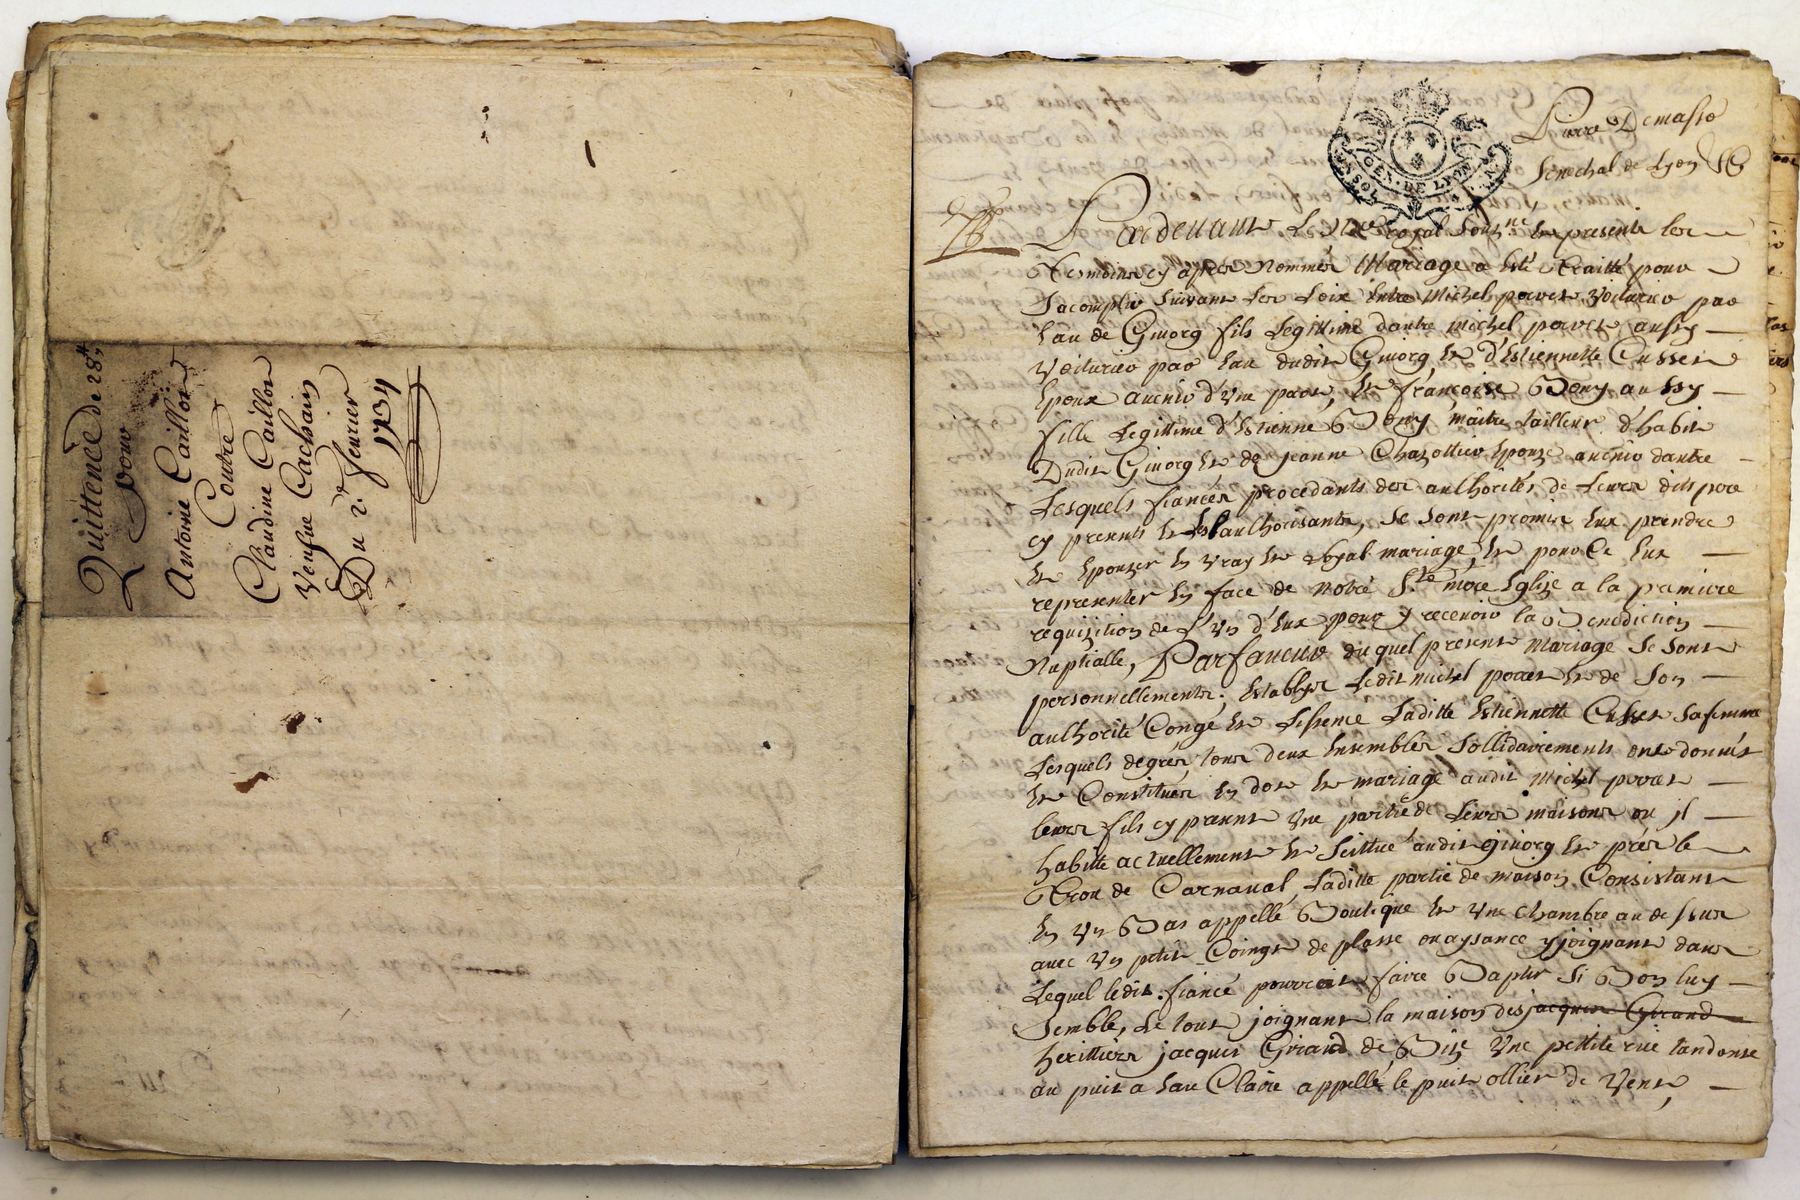 Quittence de 28ᵗᵗ
pour
Antoine Caillon
Contre
Claudine Caillon
Veufue Cachain
Du 2ᵉ feurier
1734
GEN. DE LYON
Pierre Demasso
Senechal de Lyon
Pardeuant Le No.re royal Sous.ne En presente les
Temoins cy apres Nommés Mariage a Esté Traitté pour
Sacomplir Suivant Les Loix Entre Michel poivet Voiturier par
Eau de Giuorg fils Legittime dautre Michel poivet aussy
Voiturier par Eau dudit Giuorg Et d'Estiennette Cusset
Epoux auenir d'Vne part, Et françoise Bony aussy
fille Legittime d'Estienne Bony maitre tailleur d'habit
Dudit Giuorg Et de jeanne Chazottier Epouze auenir dautre
Lesquels fiancés procedants des authorités de Leurs dits pere
cy presents Et authorisants, Se Sont promis Eux prendre
Et Epouzer En vray Et Loyal mariage, Et pour Ce Eux
representer En face de notre S.te mere Eglize a la premiere
requizition de L'Vn d'Eux pour y receuoir la Benediction
Nuptialle, Parfaueur du quel present Mariage Se Sont
personnellements Establys Ledit michel poivet Et de Son
authorité Congé Et Lissence Laditte Estiennette Cusset Safemme
Lesquels degrés tous deux Ensembles Sollidairements ont donnés
Et Constitués En dot Et mariage audit Michel poivet
leurs fils cy present Vne partie de Leurs maisons ou jl
habitte actuellement Et Scittué audit giuorg Et prés le
Trou de Carnaual, Laditte partie de maison Consistant
En Vn Bas appellé Boutique Et Vne Chambre au dessus
auec Vn petit Coingt de plasse ou aysance y joignant dans
Lequel ledit fiancé pourroit faire Baptir Si Bon luy
Semble, Le tout joignant la maison des jacques Girand
herittiers jacques Girand de Bize Vne pettite rüe tandante
au puit a Eau Claire appellé le puit ollier de Vent,